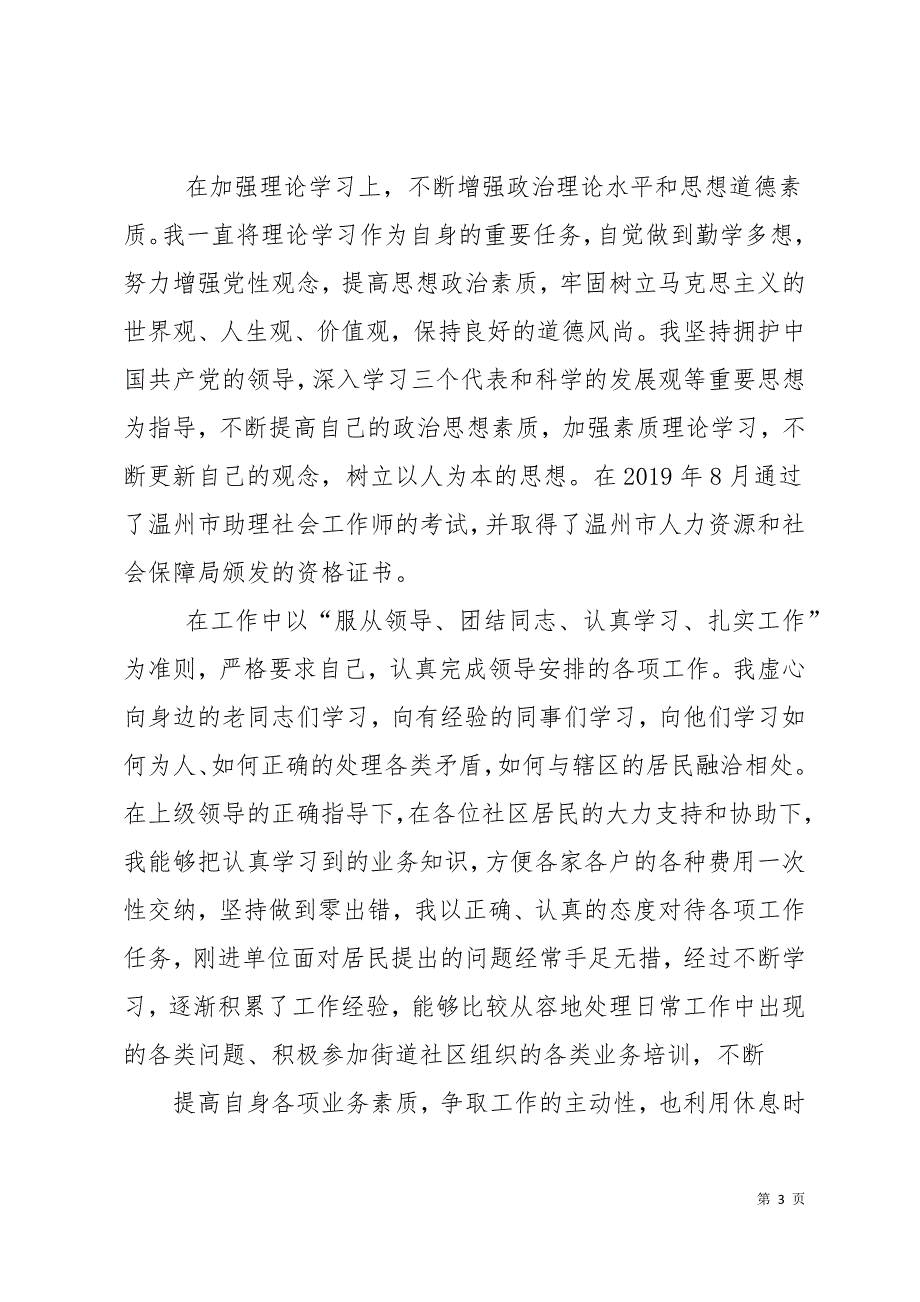 在加强理论学习上，不断增强政治理论水平和思想道德素
质。我一直将理论学习作为自身的重要任务，自觉做到勤学多想，
努力增强党性观念，提高思想政治素质，牢固树立马克思主义的
世界观、人生观、价值观，保持良好的道德风尚。我坚持拥护中
国共产党的领导，深入学习三个代表和科学的发展观等重要思想
为指导，不断提高自己的政治思想素质，加强素质理论学习，不
断更新自己的观念，树立以人为本的思想。在 2019 年 8 月通过
了温州市助理社会工作师的考试，并取得了温州市人力资源和社
会保障局颁发的资格证书。
在工作中以“服从领导、团结同志、认真学习、扎实工作”
为准则，严格要求自己，认真完成领导安排的各项工作。我虚心
向身边的老同志们学习，向有经验的同事们学习，向他们学习如
何为人、如何正确的处理各类矛盾，如何与辖区的居民融洽相处。
在上级领导的正确指导下，在各位社区居民的大力支持和协助下，
我能够把认真学习到的业务知识，方便各家各户的各种费用一次
性交纳，坚持做到零出错，我以正确、认真的态度对待各项工作
任务，刚进单位面对居民提出的问题经常手足无措，经过不断学
习，逐渐积累了工作经验，能够比较从容地处理日常工作中出现
的各类问题、积极参加街道社区组织的各类业务培训，不断
提高自身各项业务素质，争取工作的主动性，也利用休息时
第 3 页